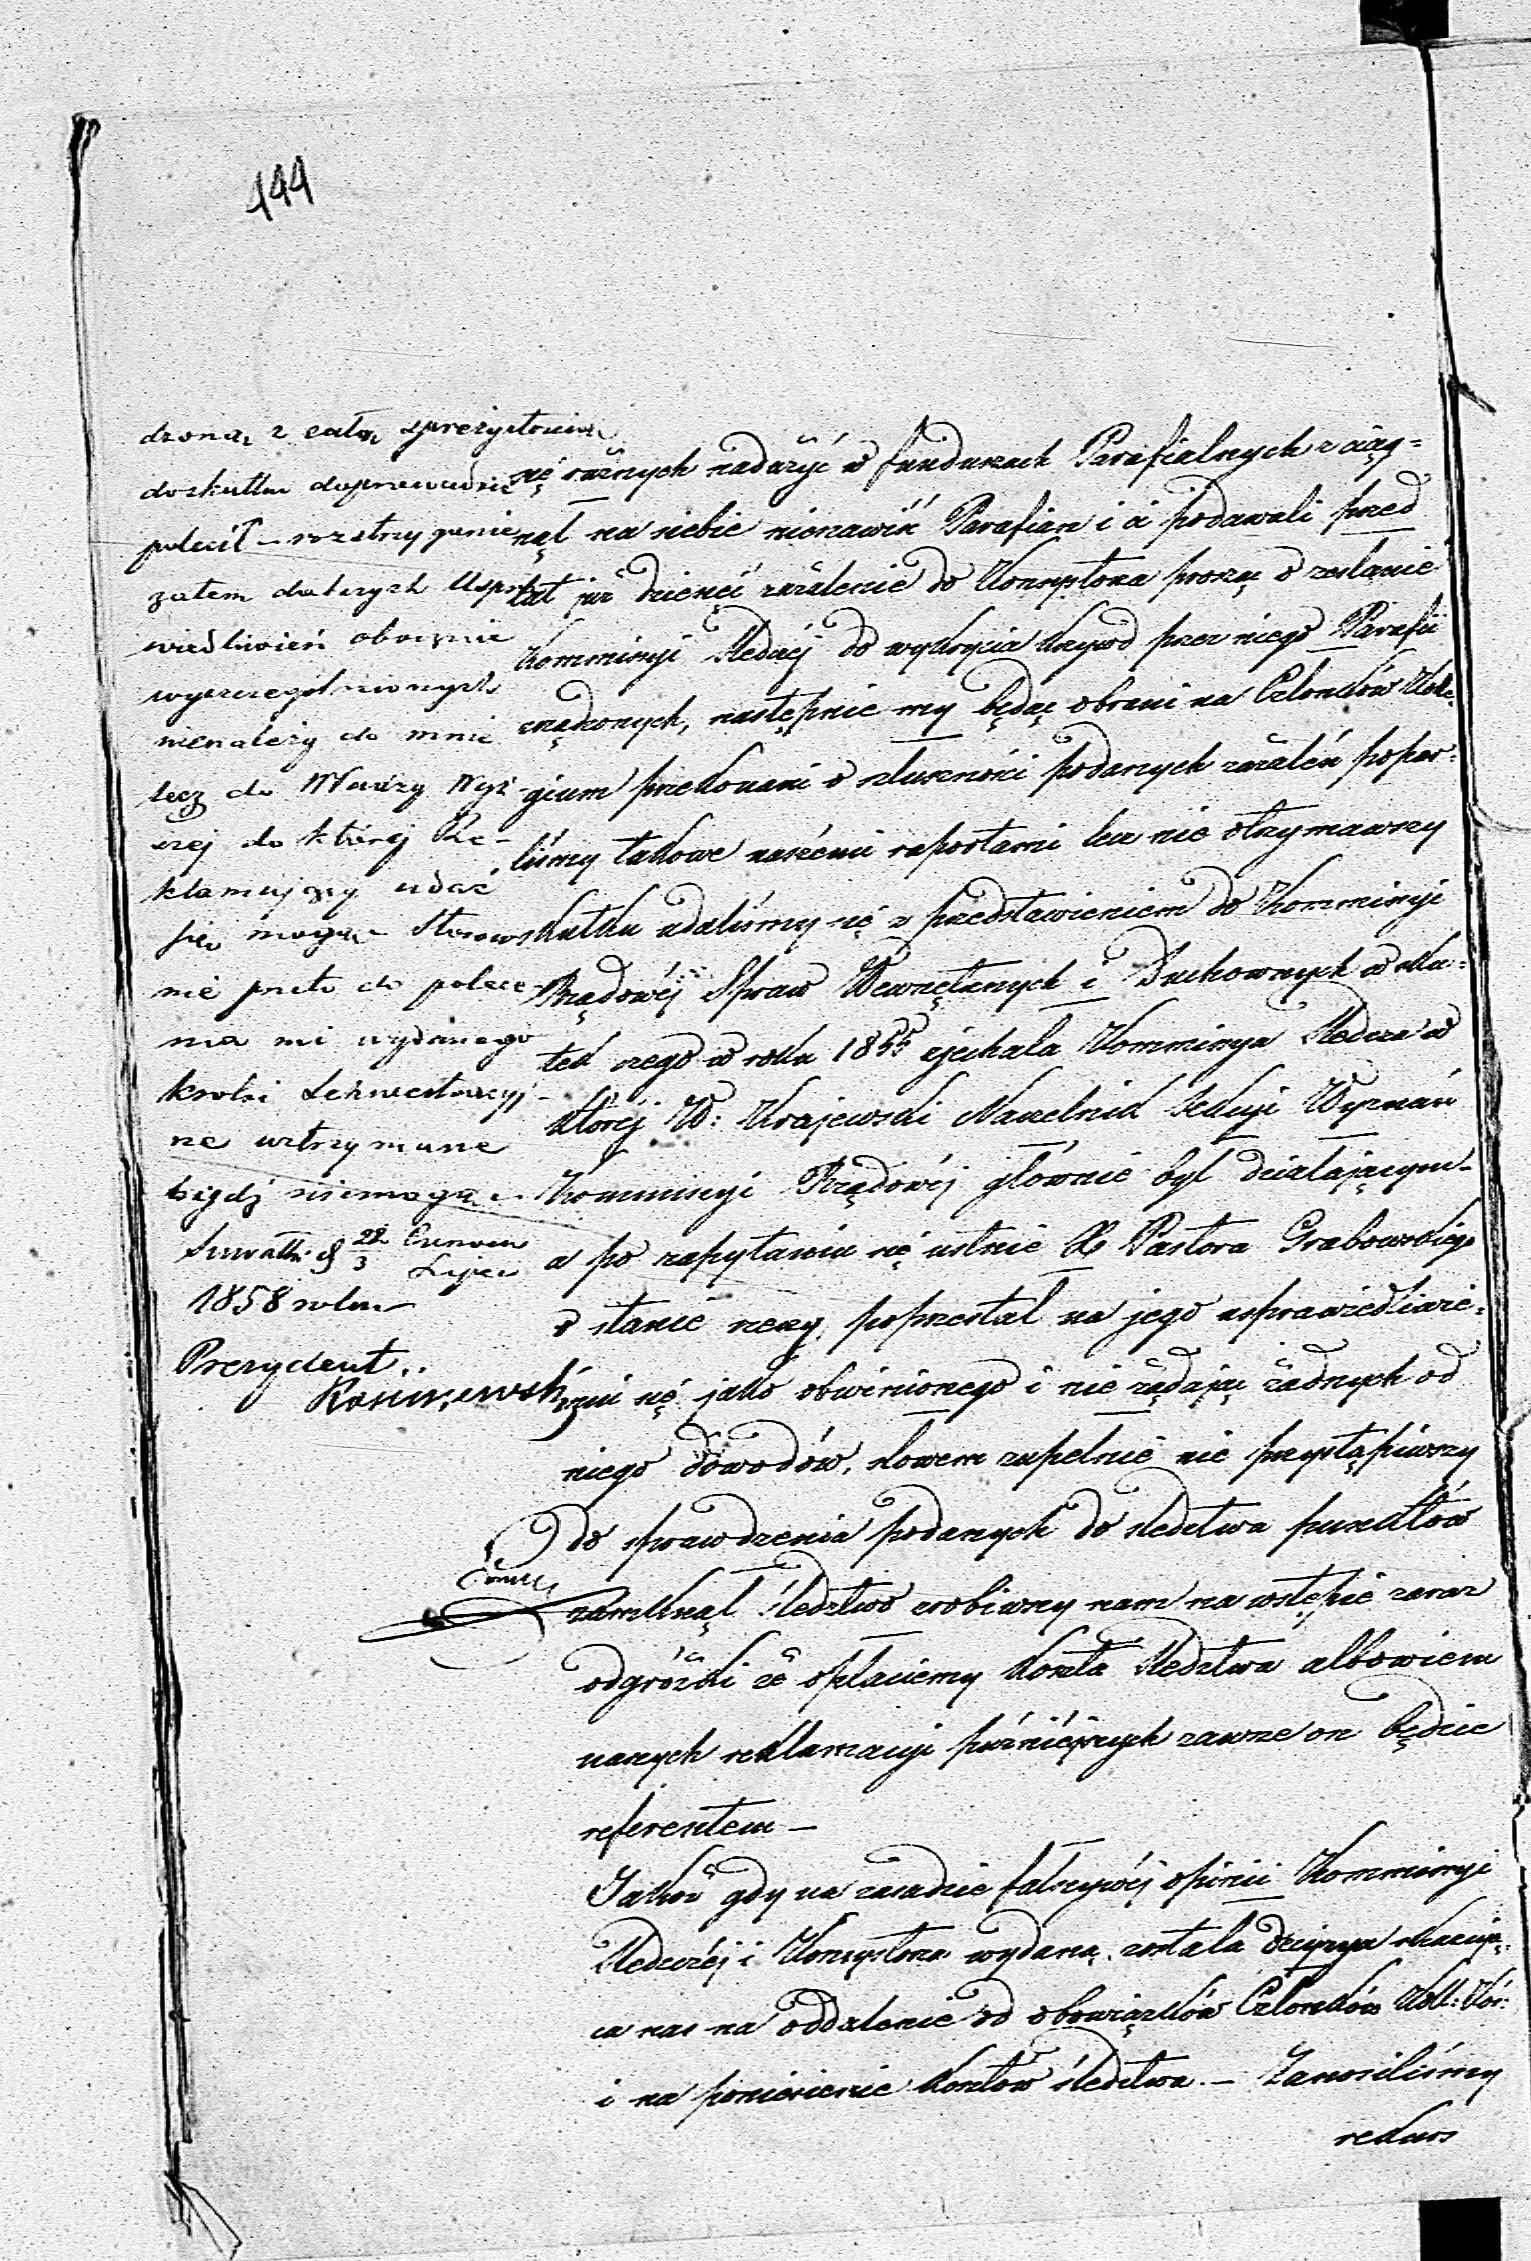 444
dzoną z całą sprężystością
doskutku doprowadzić
polecił – rozstrzyganie
zatem dalszych Uspra
wiedliwień obocznie
wyszczególnionych
nienależy do mnie
lecz do Władzy Wyż-
szej do której Re-
klamujący udać
się mogą – Stosow
nie przeto do polece-
nia mi wydanego
kroki Sekwestracyj-
ne wstrzymane
bydź niemogą –
Suwałki d 22/3 Czerwca Lipca
1858 roku
Prezydent
się różnych nadużyć w funduszach Parafialnych ściąg=
nął na siebie nienawiść Parafian i ci podawali przed
lat już dziesięć zażalenie do Konsystorza prosząc o zesłanie
Kommissyi Śledczej do wykrycia krzywd przez niego Parafii
zrządzonych, następnie my będąc obrani na Członków Kolle
gium przekonani o słuszności podanych zażaleń popar=
liśmy takowe naszémi raportami lecz nie otrzymawszy
skutku udaliśmy się z przedstawieniem do Kommissyi
Rządowéj Spraw Wewnętrznych i Duchownych w sku=
tek czego w roku 1855 zjechała Kommissya Śledcza w
któréj W: Krajewski Naczelnik Sekcyi Wyznań
Kommissyi Rządowéj głównie był działającym –
a po zapytaniu się ustnie X Pastora Grabowskiego
o stanie rzeczy, poprzestał na jego usprawiedliwie=
niu się jako obwinionego i nie żądając żadnych od
niego dowodów, słowem zupełnie nie przystąpiwszy
do sprawdzenia podanych do śledztwa punktów
zamknął śledztwo zrobiwszy nam na wstępie zaraz
odgróżki że opłaciemy koszta śledztwa albowiem
naszych reklamacyi późniéjszych zawsze on będzie
referentem –
Jakoż gdy na zasadzie fałszywéj opinii Kommissyi
Śledczéj i Konsystorza wydaną została decyzya skazują=
ca nas na oddalenie od obowiązków Członków Koll: Koś:
i na poniesienie kosztów śledztwa. – Zanosiliśmy
rekurs